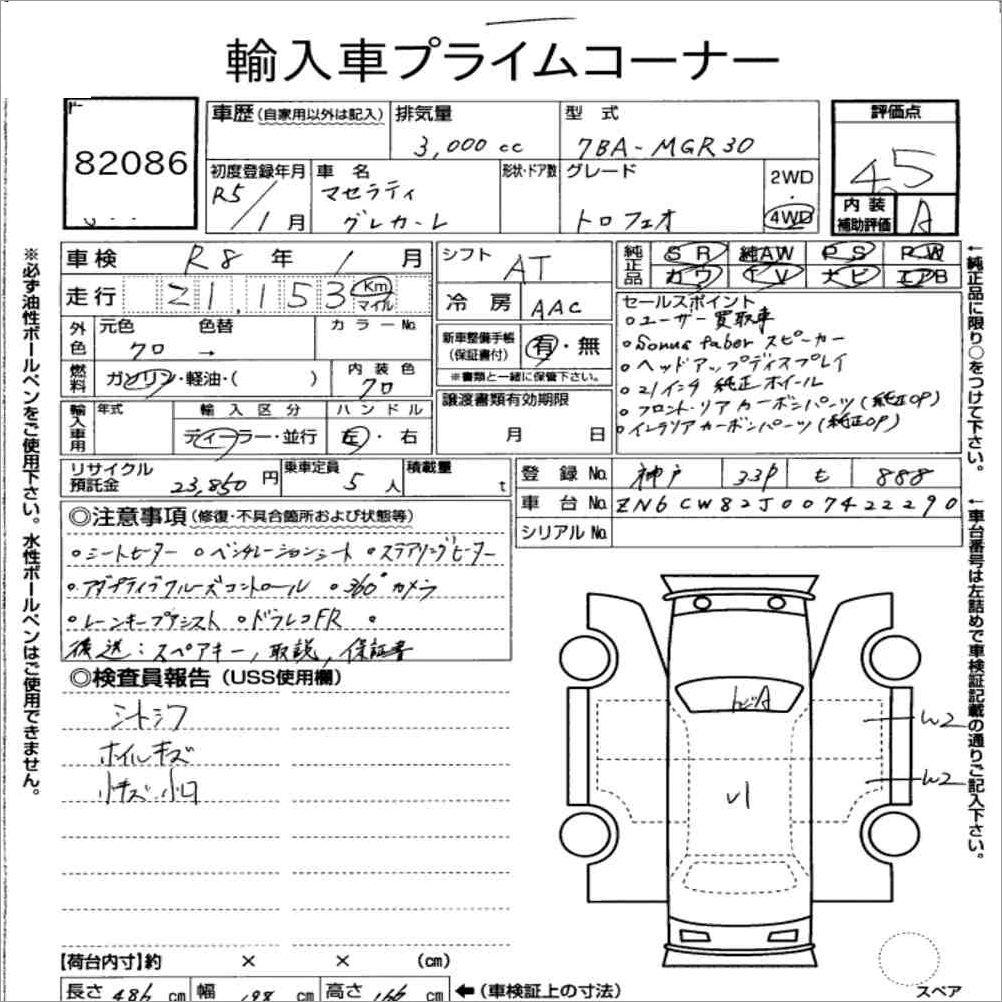 輸入車プライムコーナー
82086
車歴 (自家用以外は記入)
排気量
3,000 cc
型式
7BA-MGR30
評価点
4.5
内装補助評価
A
初度登録年月
R5/1月
車名
マセラティ
グレカーレ
形状・ドア数
グレード
トロフェオ
2WD
・
4WD
車検 R8年 1月
シフト AT
純正品
SR 純AW PS PW
カワ TV ナビ エアB
走行 21,153 Km マイル
冷房 AAC
セールスポイント
○ユーザー買取車
○Sonus faber スピーカー
○ヘッドアップディスプレイ
○21インチ 純正ホイール
○フロント・リアカーボンパーツ(純正OP)
○インテリアカーボンパーツ(純正OP)
外色
元色 クロ → 色替
カラーNo.
新車整備手帳(保証書付) 有・無
※書類と一緒に保管下さい。
燃料 ガソリン・軽油・( )
内装色 クロ
譲渡書類有効期限
月 日
輸入車用
年式
輸入区分 ディーラー・並行
ハンドル 左・右
リサイクル預託金 23,850円
乗車定員 5人
積載量 t
登録No. 神戸 33P も 888
車台No. ZN6CW82J007422290
シリアルNo.
◎注意事項 (修復・不具合箇所および状態等)
○シートヒーター ○ベンチレーションシート ○ステアリングヒーター
○アダプティブクルーズコントロール ○360°カメラ
○レーンキープアシスト ○ドラレコFR ○
後送:スペアキー,取説,保証書
◎検査員報告 (USS使用欄)
シートシワ
ホイルキズ
小キズ 小凹
トビA
W2
W2
スペア
【荷台内寸】約 × × (cm)
長さ 486 cm 幅 198 cm 高さ 166 cm ←(車検証上の寸法)
※必ず油性ボールペンをご使用下さい。水性ボールペンはご使用できません。
←純正品に限り○をつけて下さい。
←車台番号は左詰めで車検証記載の通りご記入下さい。